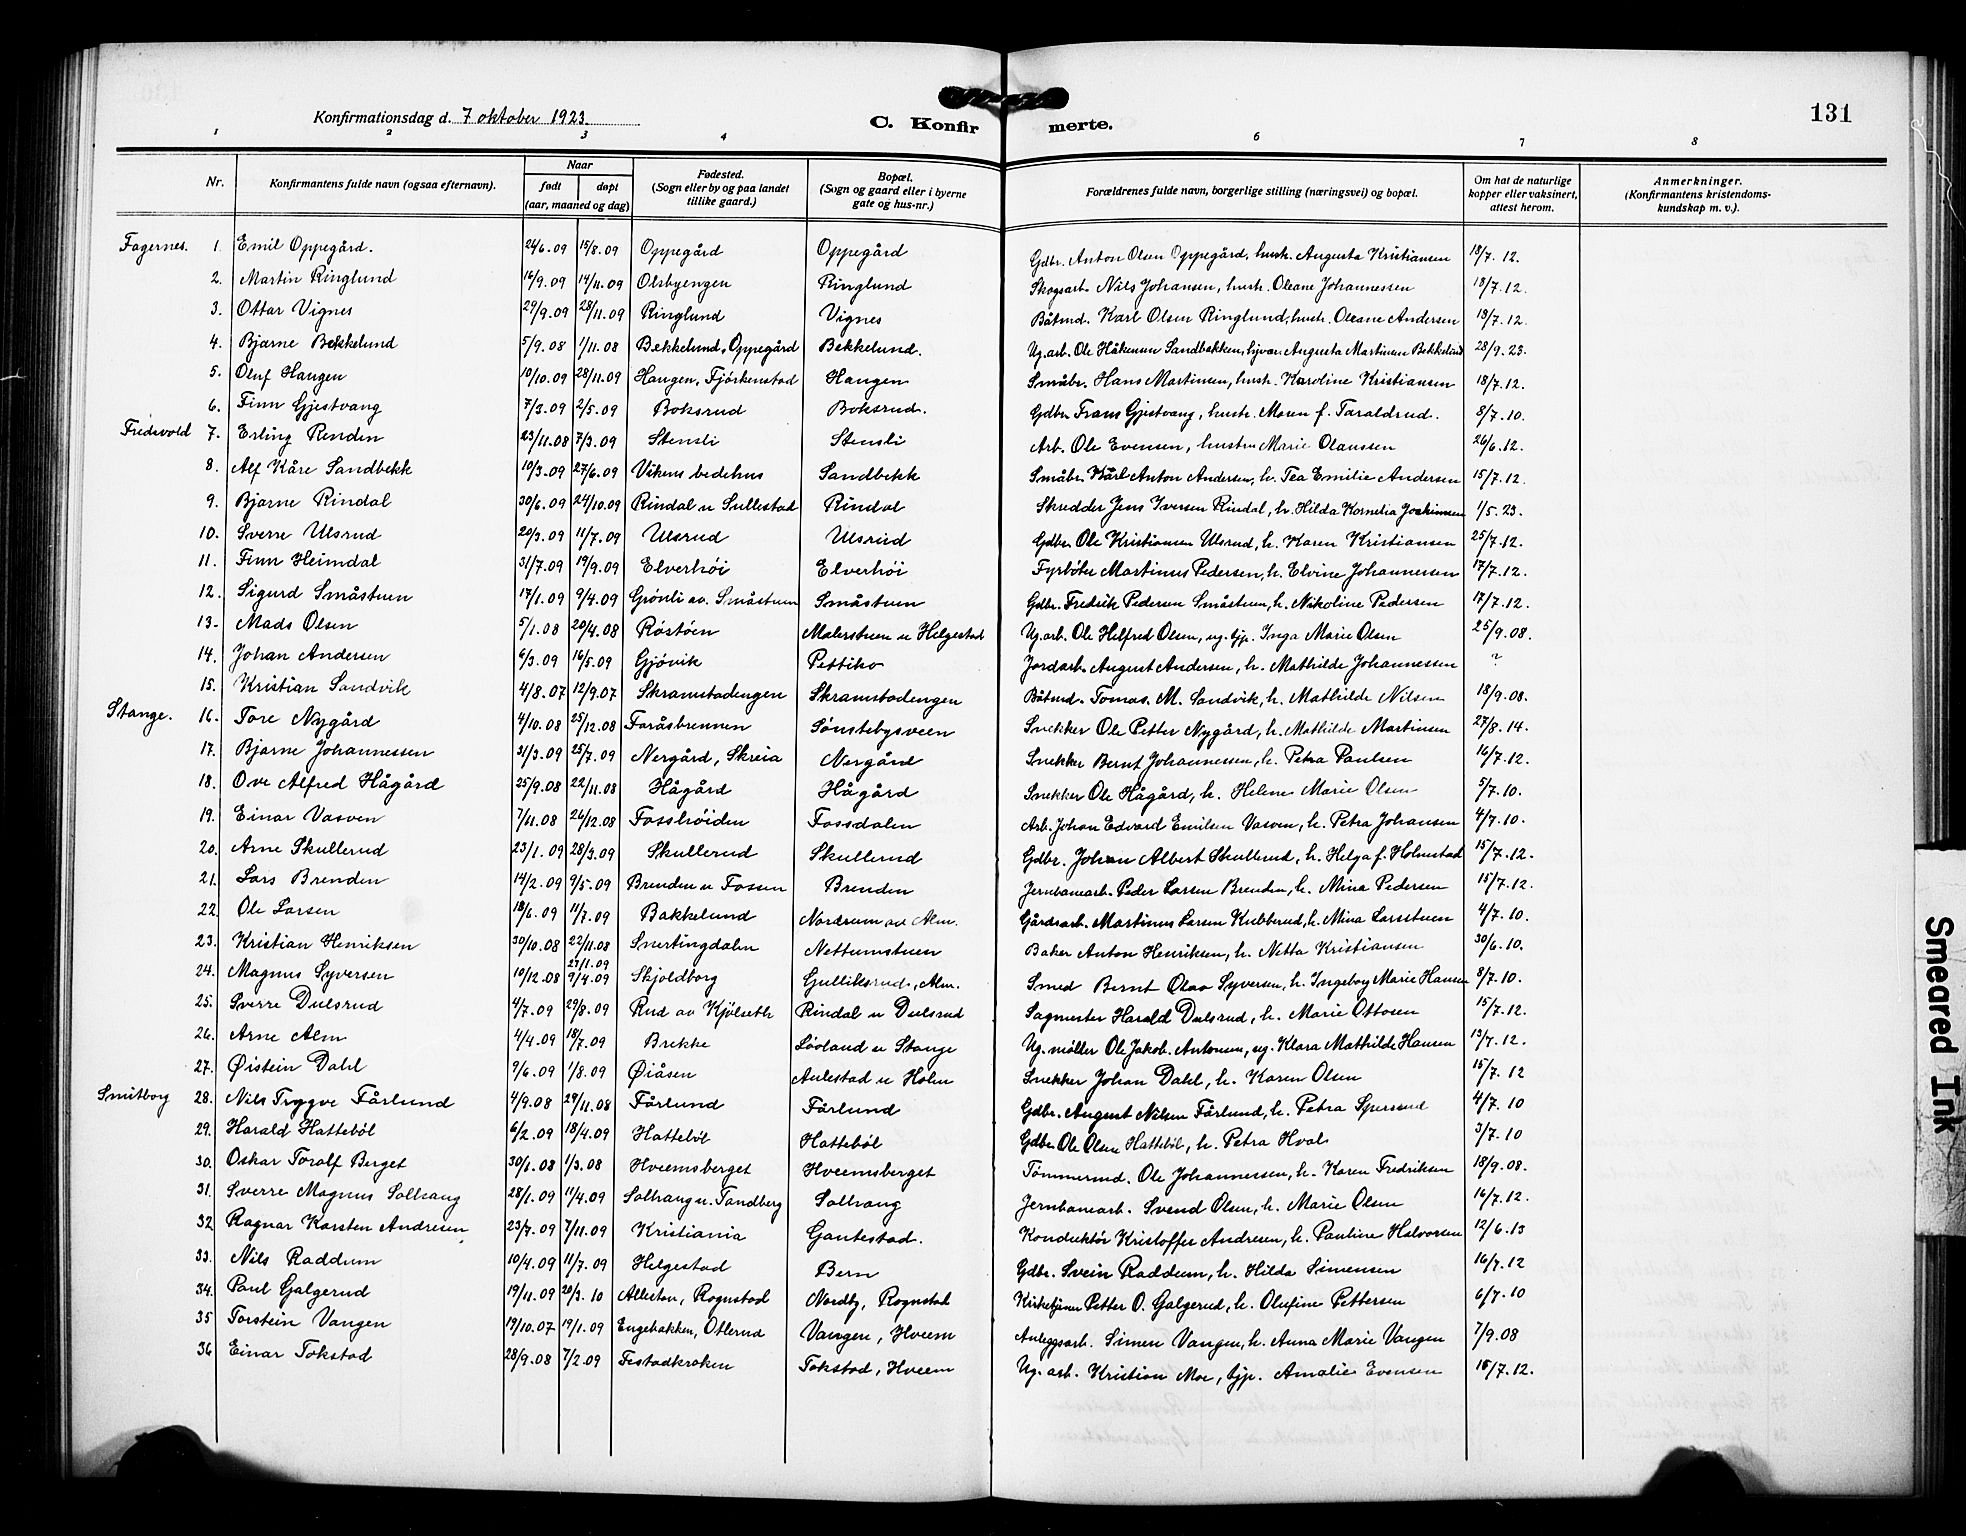 131
Konfirmationsdag d. 7 oktober 1923.
C. Konfirmerte.
1 2 3 4 5 6 7 8
Nr. Konfirmantens fulde navn (ogsaa efternavn). Naar født døpt (aar, maaned og dag) Fødested. (Sogn eller by og paa landet tillike gaard.) Bopæl. (Sogn og gaard eller i byerne gate og hus-nr.) Forældrenes fulde navn, borgerlige stilling (næringsvei) og bopæl. Om hat de naturlige kopper eller vaksinert, attest herom. Anmerkninger. (Konfirmantens kristendoms-kundskap m. v.).
Fagernes. 1. Emil Oppegård. 24/6.09 15/8.09 Oppegård Oppegård Gdbr. Anton Olsen Oppegård, hustr. Augusta Kristiansen 18/7.12.
2. Martin Ringlund 16/9.09 14/11.09 Olsbyengen Ringlund Skogsarb. Nils Johansen, hustr. Oleane Johannessen 18/7.12.
3. Ottar Vignes 29/9.09 28/11.09 Ringlund Vignes Båtmd. Karl Olsen Ringlund, hustr. Oleane Andersen 19/7.12.
4. Bjarne Bekkelund 5/9.08 1/11.08 Bekkelund, Oppegård Bekkelund. Ug. arb. Ole Håkensen Sandbakken, Augusta Martinsen Bekkelund 28/9.23.
5. Oluf Haugen 10/10.09 28/11.09 Haugen, Fjörkenstad Haugen Småbr. Hans Martinsen, hustr. Karoline Kristiansen 18/7.12.
6. Finn Gjestvang 7/3.09 2/5.09 Boksrud Boksrud. Gdbr. Frans Gjestvang, hustr. Maren f. Taraldrud. 8/7.10.
Fredsvold 7. Erling Renden 23/11.08 7/3.09 Stensli Stensli Arb. Ole Evensen, hustru Marie Olaussen 26/6.12.
8. Alf Kåre Sandbekk 10/3.09 27/6.09 Vikens bedehus Sandbekk Småbr. Karl Anton Andersen, h. Tea Emilie Andersen 15/7.12.
9. Bjarne Rindal 30/6.09 24/10.09 Rindal u Sullestad Rindal Skredder Jens Iversen Rindal, h. Hilda Kornelia Joakimsen 1/5.23.
10. Sverre Ulsrud 20/3.09 11/7.09 Ulsrud Ulsrud Gdbr. Ole Kristiansen Ulsrud, h. Karen Kristiansen 25/7.12.
11. Finn Heimdal 31/7.09 19/9.09 Elverhöi Elverhöi Fyrböter Martinus Pedersen, h. Elvine Johannessen 17/7.12.
12. Sigurd Småstuen 17/1.09 9/4.09 Grönli av. Småstuen Småstuen Gdbr. Fredrik Pedersen Småstuen, h. Nikoline Pedersen 17/7.12.
13. Mads Olsen 5/1.08 20/4.08 Röstöen Malerstuen u Helgestad Ug. arb. Ole Helfred Olsen, ug. tjp. Inga Marie Olsen 25/9.08.
14. Johan Andersen 6/3.09 16/5.09 Gjövik Pettiho Jordarb. August Andersen, h. Mathilde Johannessen ?
15. Kristian Sandvik 4/8.07 12/9.07 Skramstadengen Skramstadengen Båtmd. Tomas. M. Sandvik, h. Mathilde Nilsen 18/9.08.
Stange. 16. Tore Nygård 4/10.08 25/12.08 Faråsbrennen Sønstebysveen Snekker Ole Petter Nygård, h. Mathilde Martinsen 27/8.14.
17. Bjarne Johannessen 31/3.09 25/7.09 Nergård, Skreia Nergård Snekker Bernt Johannessen, h. Petra Paulsen 16/7.12.
18. Ove Alfred Hågård 25/9.08 22/11.08 Hågård Hågård Snekker Ole Hågård, h. Helene Marie Olsen 5/7.10.
19. Einar Vasven 7/11.08 26/12.08 Fosshöiden Fossdalen Arb. Johan Edvard Emilsen Vasven, h. Petra Johansen 4/7.10.
20. Arne Skullerud 23/1.09 28/3.09 Skullerud Skullerud Gdbr. Johan Albert Skullerud, h. Helga f. Holmstad 15/7.12.
21. Lars Brenden 14/2.09 9/5.09 Brenden u Fossen Brenden Jernbanearb. Peder Larsen Brenden, h. Mina Pedersen 15/7.12.
22. Ole Larsen 18/6.09 11/7.09 Bakkelund Nordrum av Alm. Gårdsarb. Martinus Larsen Kubberud, h. Mina Larsstuen 4/7.10.
23. Kristian Henriksen 30/10.08 22/11.08 Snertingdalen Nettumstuen Baker Anton Henriksen, h. Netta Kristiansen 30/6.10.
24. Magnus Syversen 10/12.08 27/1.09 9/4.09 Skjoldborg Gulliksrud, Alm. Smed Bernt Olav Syversen, h. Ingeborg Marie Hansen 8/7.10.
25. Sverre Dulsrud 4/7.09 29/8.09 Rud av Kjölseth Rindal u Dulsrud Sagmester Harald Dulsrud, h. Marie Ottosen 15/7.12.
26. Arne Alm 4/4.09 18/7.09 Brekke Löoland u Stange Ug. möller Ole Jakob. Antonsen, ug. Klara Mathilde Hansen 13/7.12.
27. Øistein Dahl 9/6.09 1/8.09 Øiåsen Aulestad u Holm Snekker Johan Dahl, h. Karen Olsen 15/7.12
Smitborg 28. Nils Trygve Fårlund 4/9.08 29/11.08 Fårlund Fårlund Gdbr. August Nilsen Fårlund, h. Petra Spersrud 4/7.10
29. Harald Hatteböl 6/2.09 18/4.09 Hatteböl Hatteböl Gdbr. Ole Olsen Hatteböl, h. Petra Hval 3/7.10
30. Oskar Toralf Berget 30/1.08 1/3.08 Hveemsberget Hveemsberget Tömmermd. Ole Johannessen, h. Karen Fredriksen 18/9.08.
31. Sverre Magnus Solhaug 28/1.09 11/4.09 Solhaug u. Tandberg Solhaug Jernbanearb. Svend Olsen, h. Marie Olsen 16/7.12.
32. Ragnar Karsten Andresen 23/7.09 7/11.09 Kristiania Gautestad. Konduktör Kristoffer Andresen, h. Pauline Halvorsen 12/6.13
33. Nils Raddum 10/4.09 11/7.09 Helgestad Bern Gdbr. Svein Raddum, h. Hilda Simensen 16/7.12
34. Paul Galgerud 19/11.09 20/3.10 Allestan, Rognstad Nordby, Rognstad Kirketjener Petter O. Galgerud, h. Olufine Pettersen 6/7.10
35 Torstein Vangen 19/10.07 19/1.09 Engebakken, Otlerud Vangen, Hveem Anleggsarb. Simen Vangen, h. Anna Marie Vangen 7/9.08
36 Einar Tokstad 28/9.08 7/2.09 Festadkroken Tokstad, Hveem Ug. arb. Kristian Moe, tjp. Amalie Evensen 15/7.12.
Smeared Ink